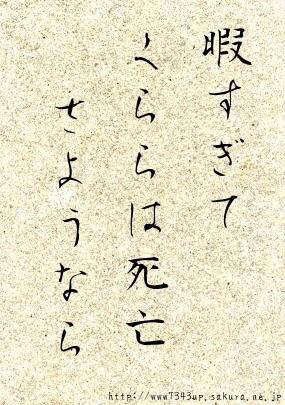 暇すぎて
くららは死亡
さようなら
http://www7343up.sakura.ne.jp